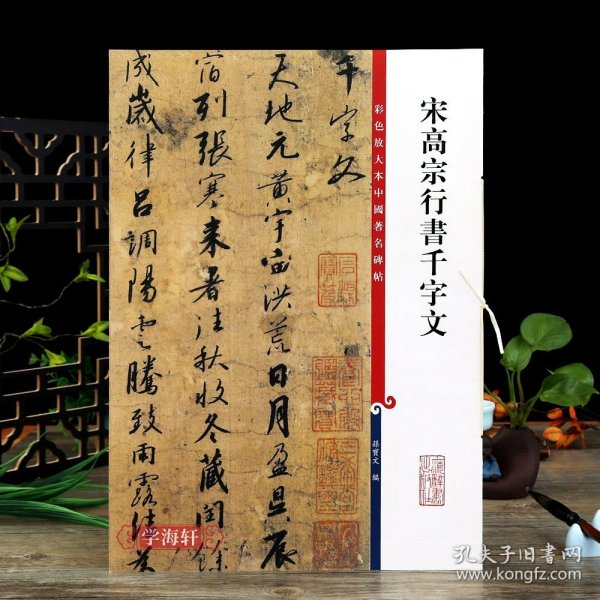 宋高宗行書千字文
彩色放大本中國著名碑帖
孫寶文 編
千字文
天地元黄宇宙洪荒日月盈昃辰
宿列張寒来暑往秋收冬藏閏餘
成歲律吕調陽雲騰致雨露結為
学海轩
孔夫子旧书网
www.kongfz.com